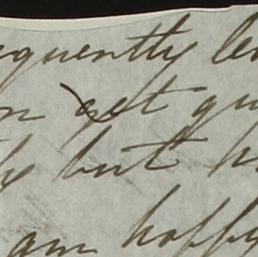 equently le
n yet qu
y but h
am happy